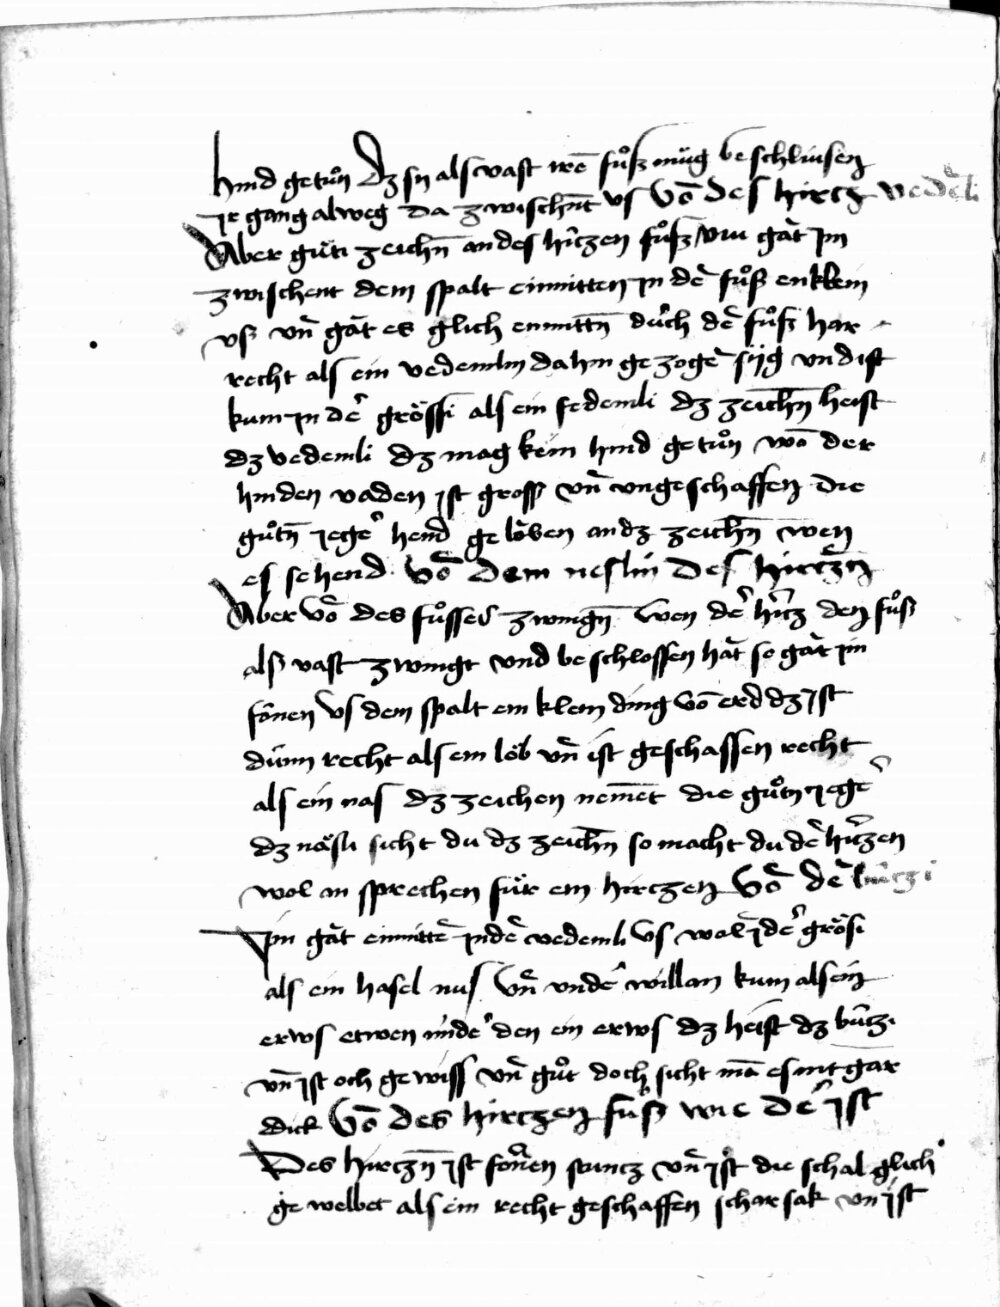 hind getuͦn Dz sy als vast iren̄ fuͦsz mug beschliusen
ir gang alweg da zwischent vs Vō des hircz vedeli
Aber guͤti zeichn̄ an des hirczen fuͦsz im gat in
zwischent dem spalt einmitten in dē fuͦsz en klein
vsz vn̄ gat es glich enmittn̄ durch dē fuͦsz har
recht als ein vedemlin dahin gezogē siyg vnd ist
kum in der grössi als ein fedemli dz zeichn̄ heist
dz vedemli dz mag kein hind getuͦn wō der
hinden vaden ist gross vn̄ vngeschaffen die
guͦtn̄ ieger hend geloͤben an dz zeichn̄ wen
es sehend Vō dem neslin des hirczn̄
Aber vō des fuͦsses zwingn̄ wen der hircz den fuͦsz
alsz vast zwingt vnd beschlossen hat so gat im
fōnen vs dem spalt ein klein ding vō erd dz ist
dünn recht als ein loͤb vn̄ ist geschassen recht
als ein nas dz zeichen nemet die guͦtn ieger
dz näsli sicht du dz zeichn̄ so macht du dē hirczen
wol an sprechen für ein hirczen Vō dē bürczi
im gat einmittē in dē vedemli vs wol in der grösi
als ein hasel nus vn̄ vnder willan kum als ein
erws etwen minder den ein erws dz heist dz bürczi
vn̄ ist och gewiss vn̄ guͦt doch sicht mā es nit gar
dick Vō des hirczen fuͦsz wie der ist
Des hirczn̄ ist fornen spincz vn̄ ist die schal glich
gewelbet als ein recht geschaffen scharsak vn̄ ist